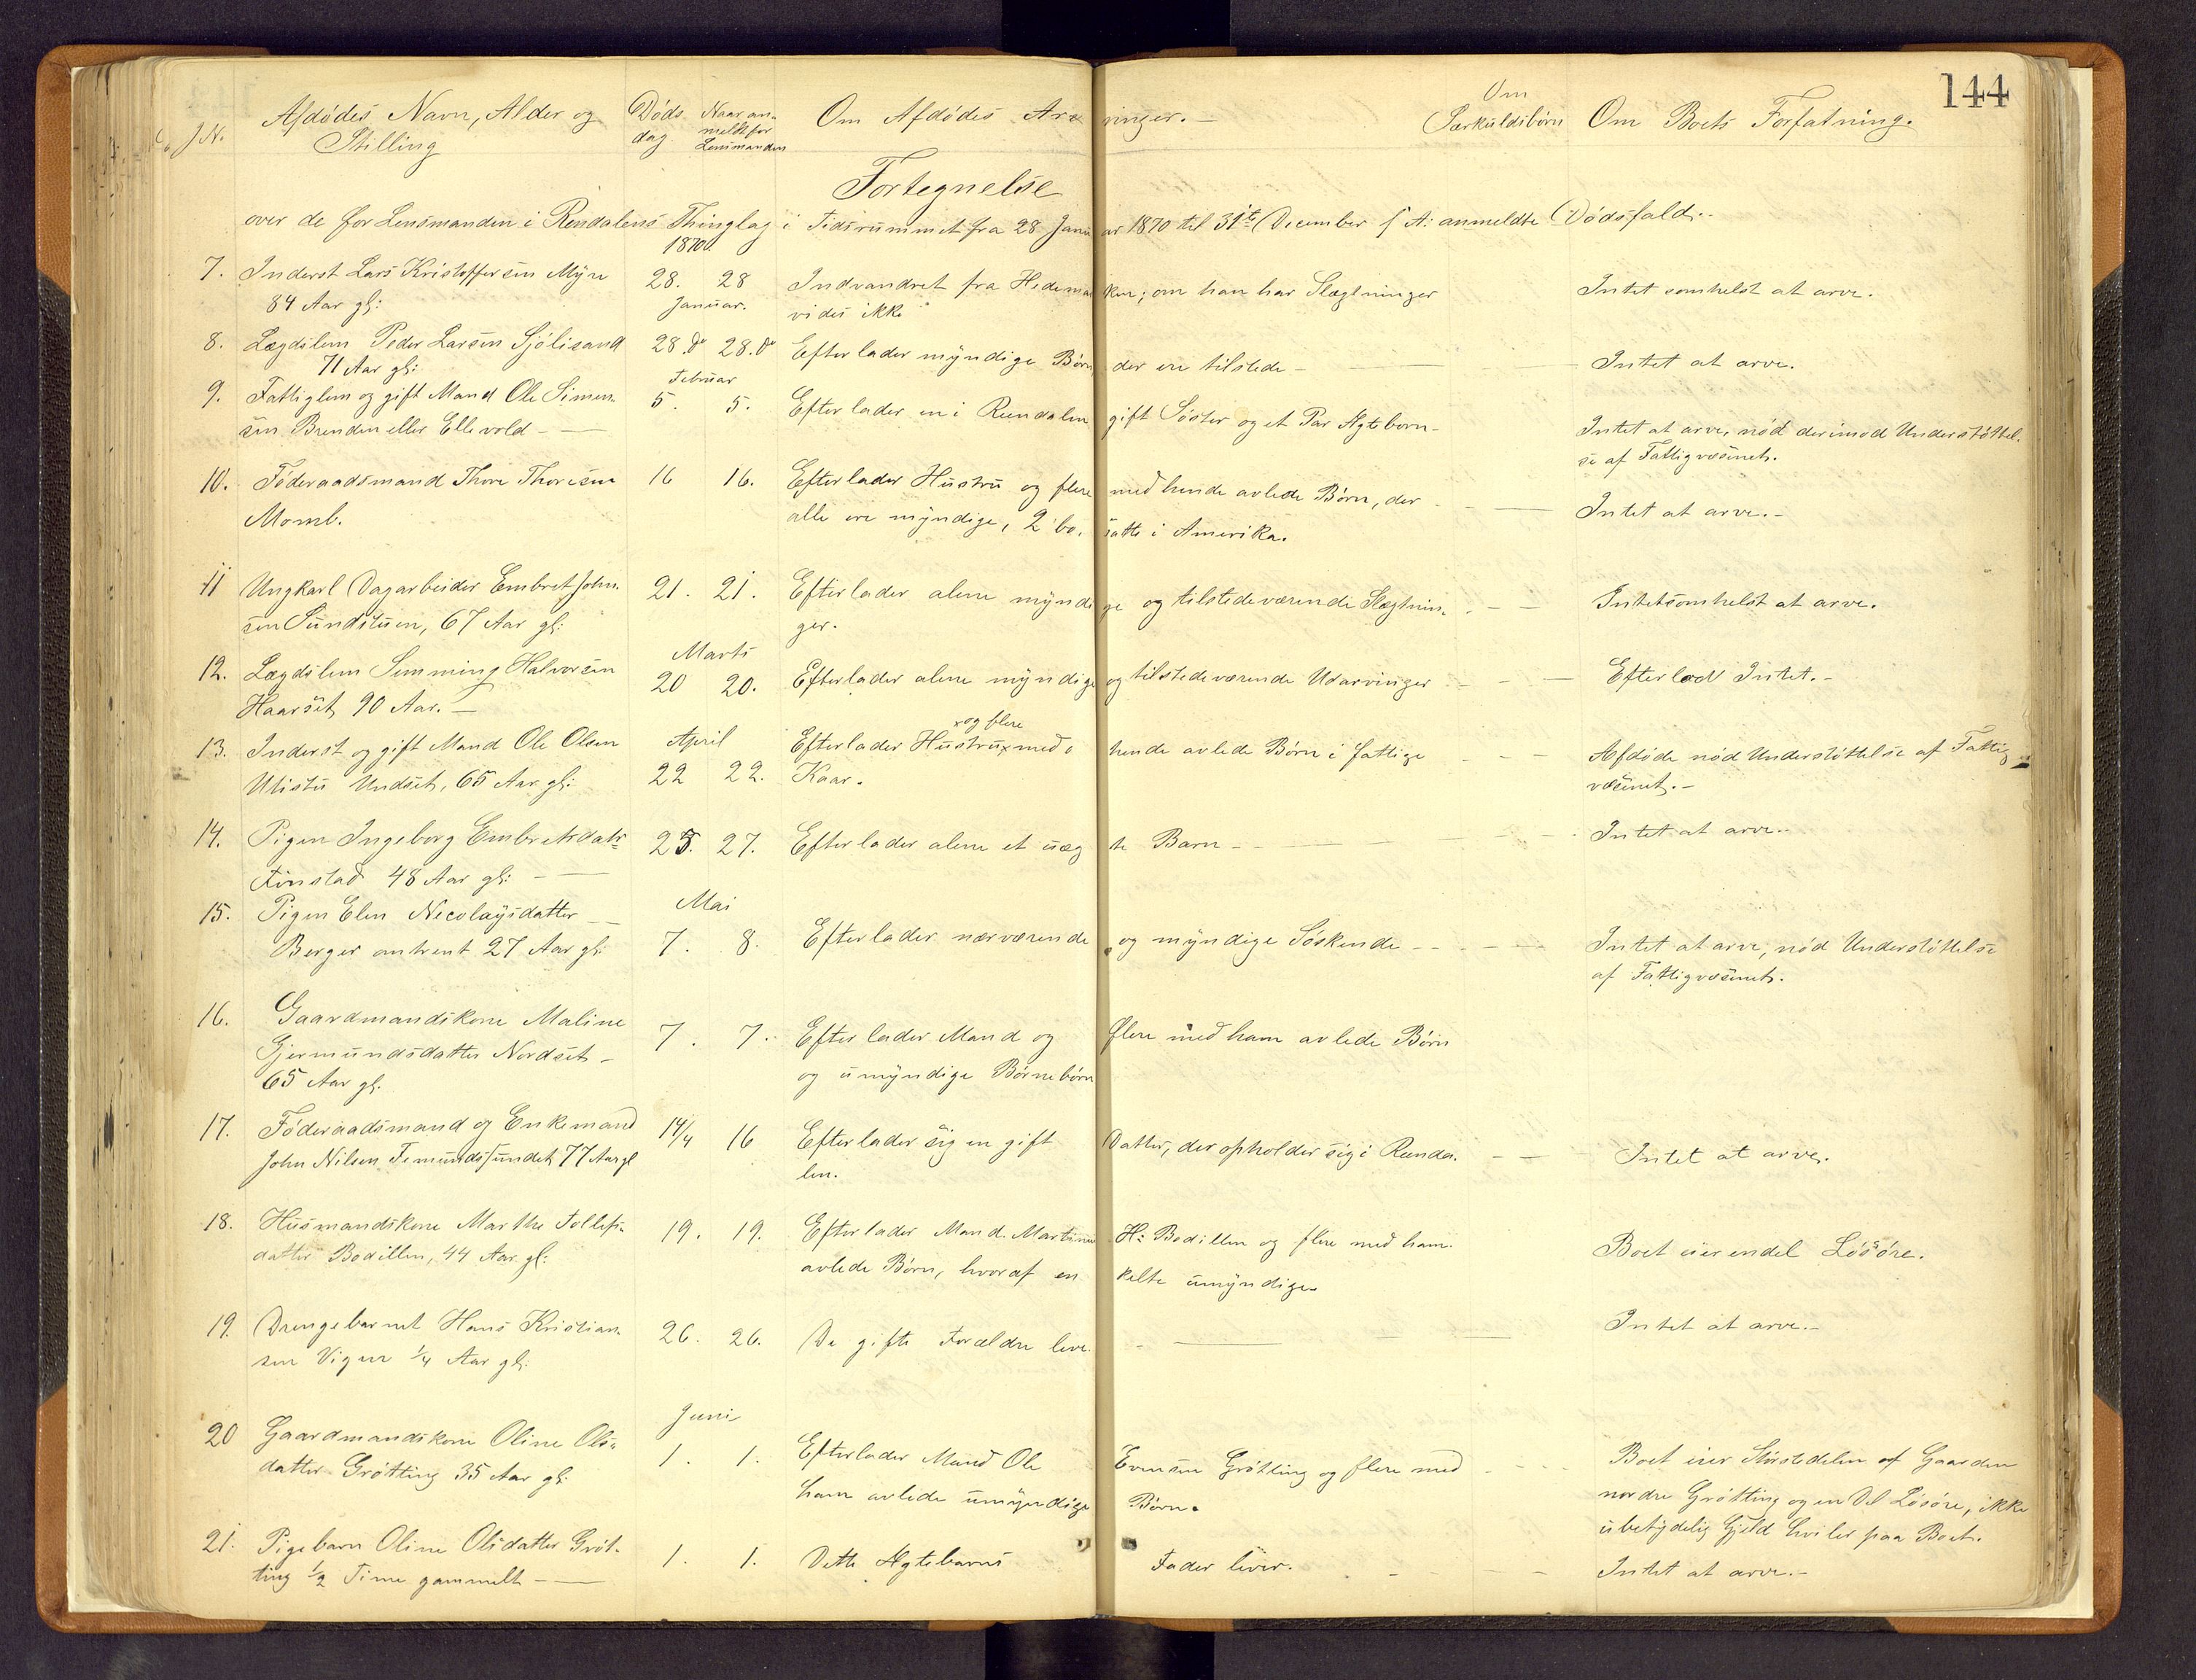 144
J.N. Afdødes Navn, Alder og Stilling Døds dag Naar an- meldt for Lensmanden Om Afdødes Arvinger.— Om Særkuldsbörn Om Boets Forfatning.
Fortegnelse
over de for Lensmanden i Rendalens Thinglag i Tidsrummet fra 28 Januar 1870 til 31te December s A: anmeldte Dødsfald.-
1870.
7. Inderst Lars Kristoffersen Myre 28. 28 Indvandret fra Hedemarken; om han har Slægtninger Intet somhelst at arve.
84 Aar gl: Januar. vides ikke
8. Lægdslem Peder Larsen Sjölisand 28.do 28.do Efterlader myndige Börn der ere tilstede - Intet at arve.
71 Aar gl: Februar
9. Fattiglem og gift Mand Ole Simen- 5. 5. Efterlader en i Rendalen gift Söster og et Par Ægtebørn- Intet at arve, nöd derimod Understøttel-
sen Brenden eller Ellevold - se af Fattigvæsenet.
10. Föderaadsmand Thore Thoresen 16 16. Efterlader Hustru og flere med hende avlede Börn, der Intet at arve.-
Momb. alle ere myndige, 2 bo- satte i Amerika.
11 Ungkarl Dagarbeider Embret John- 21. 21. Efterlader alene myndige og tilstedeværende Slægtnin- Intetsomhelst at arve.
sen Sundstuen, 67 Aar gl: ger.
Marts
12. Lægdslem Semming Halvorsen 20 20. Efterlader alene myndige og tilstedeværende Udarvinger Efterlod Intet.-
Haarset, 90 Aar.-
xog flere
13. Inderst og gift Mand Ole Olsen April Efterlader Hustru x med hende avlede Börn i fattige Afdöde nöd Understöttelse af Fattig
Utistu Undset, 65 Aar gl: 22 22. Kaar. væsenet.-
14. Pigen Ingeborg Embretsdatr 25. 27. Efterlader alene et uægte Barn - Intet at arve.-
Finstad 48 Aar gl: -
Mai
15. Pigen Elen Nicolaysdatter 7. 8. Efterlader nærværende og myndige Söskende - Intet at arve, nöd Understöttelse
Berger omtrent 27 Aar gl: af Fattigvæsenet.
16. Gaardmandskone Maline 7. 7. Efterlader Mand og flere med ham avlede Börn
Gjermundsdatter Nordset - og umyndige Börnebörn
65 Aar gl.
17. Föderaadsmand og Enkemand 14/4 16 Efterlader sig en gift Datter, der opholder sig i Renda- Intet at arve.
John Nilsen Femundsundet, 77 Aar gl len.
18. Husmandskone Marthe Tollefs- 19. 19. Efterlader Mand Martinus H: Bodillen og flere med ham Boet eier endel Lösöre.
datter Bodillen, 44 Aar gl: avlede Börn, hvoraf en kelte umyndige
19. Drengebarnet Hans Kristian- 26. 26. De gifte Forældre leve. Intet at arve.-
sen Vigen 1/4 Aar gl:
Juni
20 Gaardmandskone Oline Ols- 1. 1. Efterlader Mand Ole Evensen Gròtting og flere med Boet eier Störstedelen af Gaarden
datter Grötting 35 Aar gl: ham avlede umyndige Börn. nordre Grötting og en Del Lösöre, ikke
ubetydelig Gjeld hviler paa Boet.
21. Pigebarn Oline Olsdatter Gröt- 1. 1. Dette Ægtebarns Fader lever. Intet at arve.-
ting 1/2 Time gammelt -